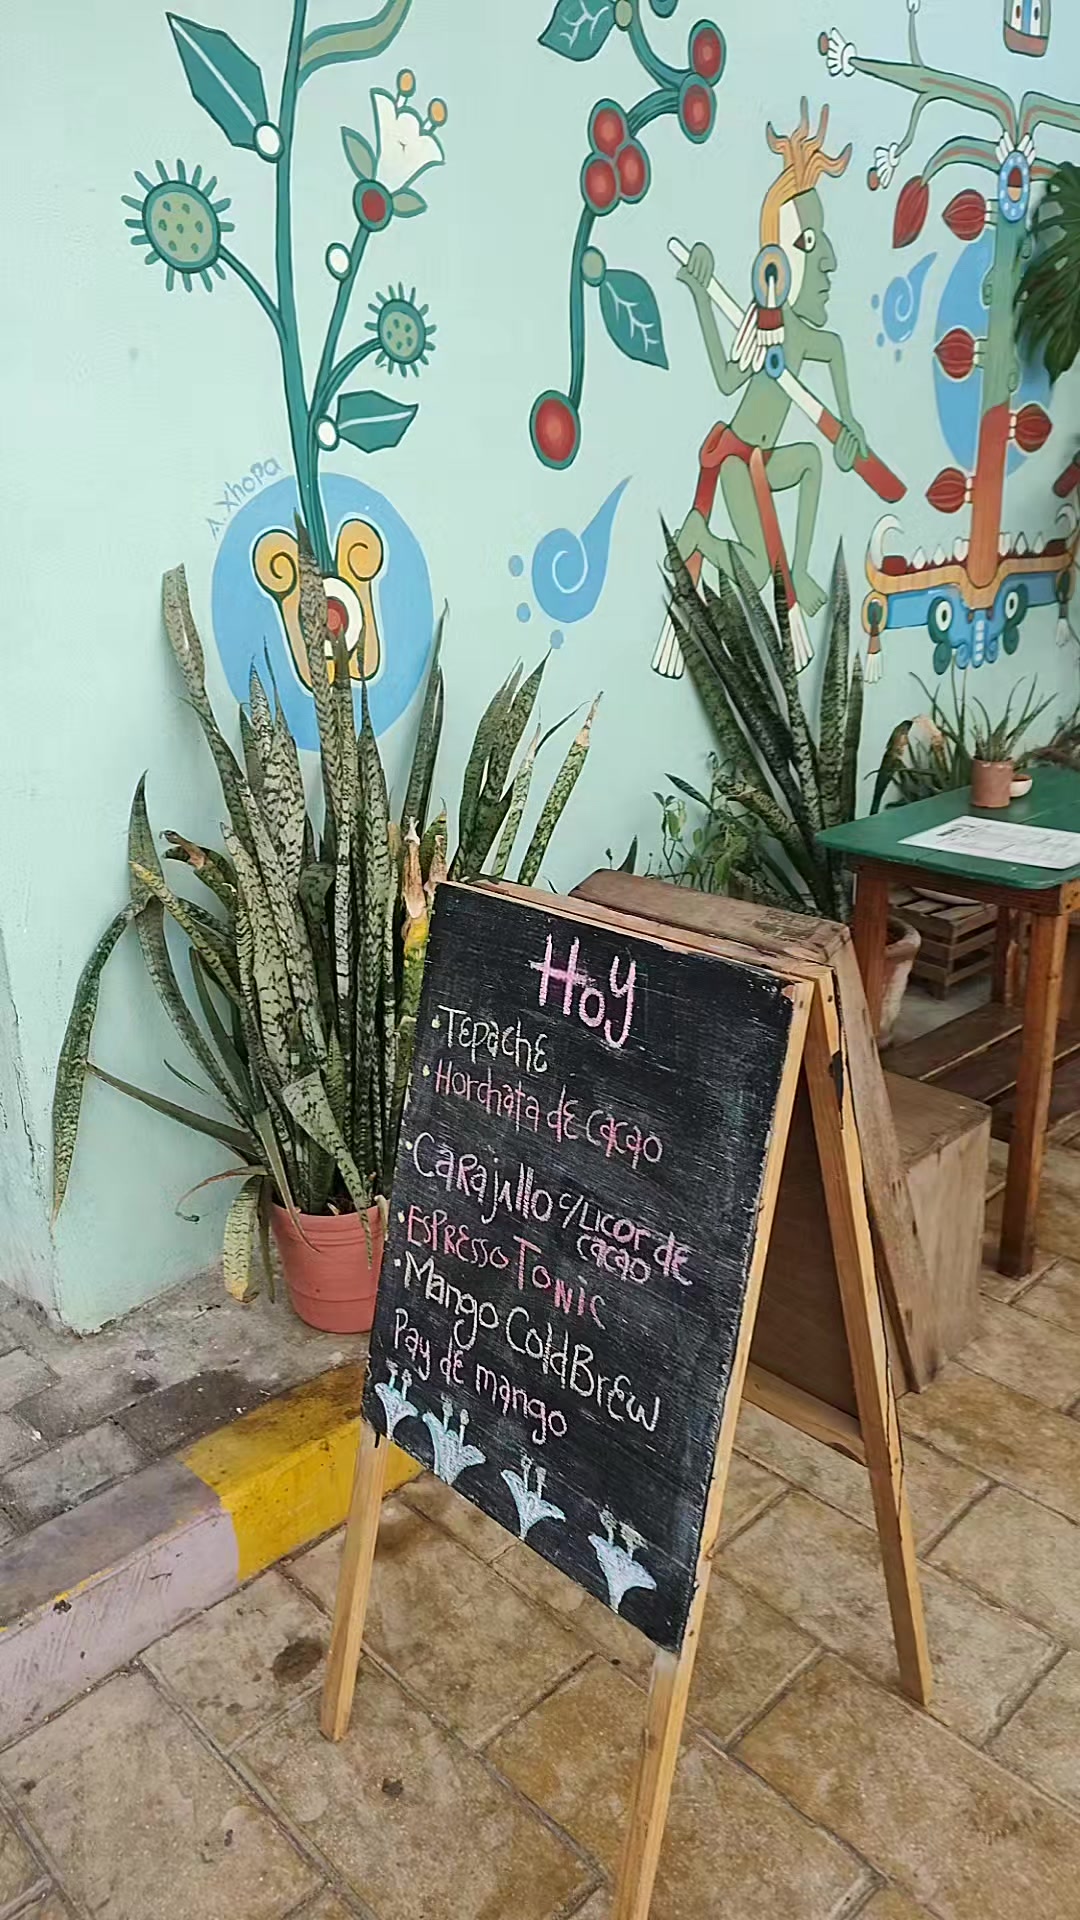 A. Xhopa
Hoy
·Tepache
·Horchata de cacao
·Carajillo c/Licor de
cacao
·Espresso Tonic
·Mango Cold Brew
Pay de mango